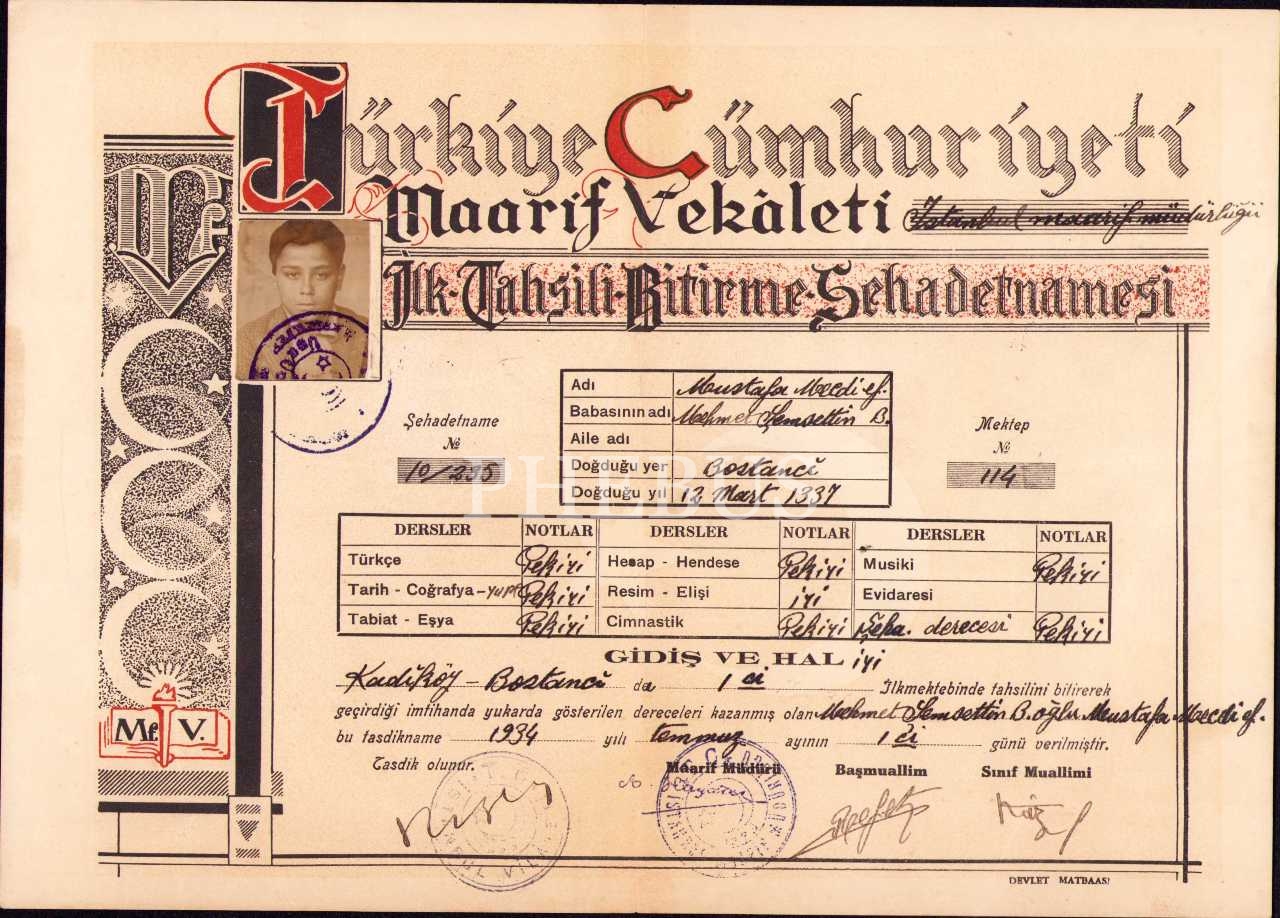 Türkiye Cümhuriyeti
Mf V
Maarif Vekâleti İstanbul maarif müdürlüğü
İlk-Tahsili-Bitirme-Şehadetnamesi
Şehadetname
№
10/295
Adı Mustafa Mecdi ef.
Babasının adı Mehmet Şemsettin B.
Aile adı
Doğduğu yer Bostancı
Doğduğu yıl 12 Mart 1337
Mektep
№
114
PHEBUS
DERSLER NOTLAR DERSLER NOTLAR DERSLER NOTLAR
Türkçe Pekiyi Hesap - Hendese Pekiyi Musiki Pekiyi
Tarih - Coğrafya - yurt Pekiyi Resim - Elişi iyi Evidaresi
Tabiat - Eşya Pekiyi Cimnastik Pekiyi Şeha. derecesi Pekiyi
GİDİŞ VE HAL iyi
Kadıköy - Bostancı da 1 ci İlkmektebinde tahsilini bitirerek
geçirdiği imtihanda yukarda gösterilen dereceleri kazanmış olan Mehmet Şemsettin B. oğlu Mustafa Mecdi ef.
bu tasdikname 1934 yılı temmuz ayının 1 ci günü verilmiştir.
Mf. V.
Tasdik olunur.
Maarif Müdürü Başmuallim Sınıf Muallimi
DEVLET MATBAASI